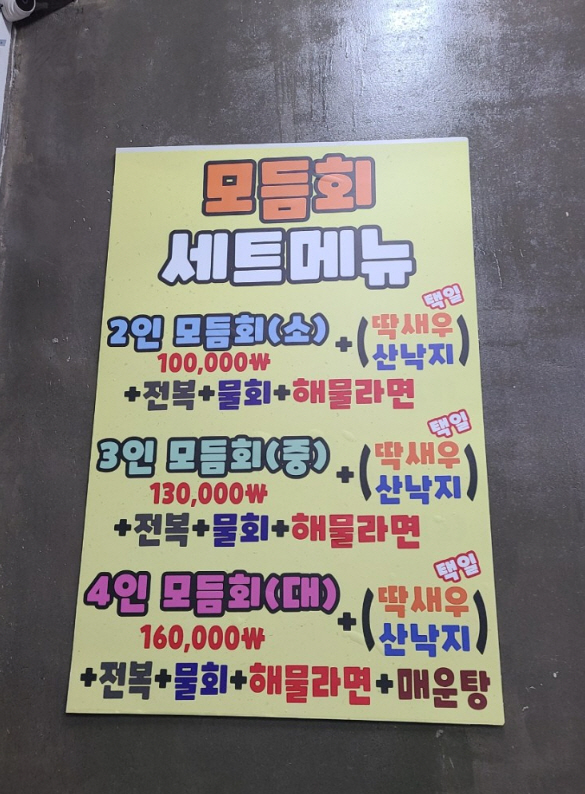 모듬회
세트메뉴
택일
2인 모듬회(소) + (딱새우 산낙지)
100,000₩
+전복+물회+해물라면
택일
3인 모듬회(중) + (딱새우 산낙지)
130,000₩
+전복+물회+해물라면
택일
4인 모듬회(대) + (딱새우 산낙지)
160,000₩
+전복+물회+해물라면+매운탕